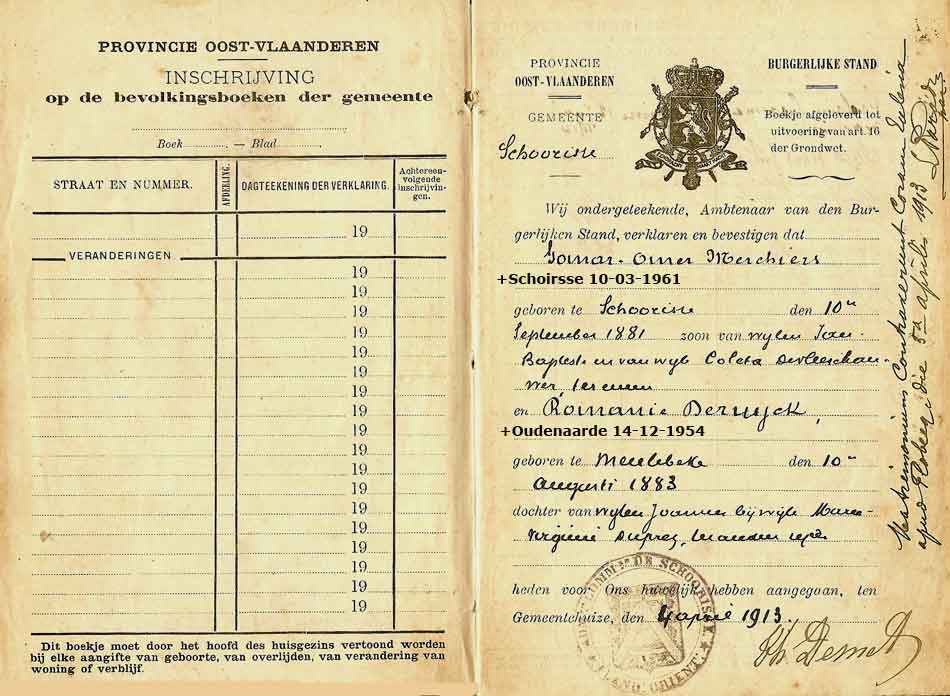 PROVINCIE OOST-VLAANDEREN
INSCHRIJVING
op de bevolkingsboeken der gemeente
Boek — Blad
STRAAT EN NUMMER.
AFDEELING.
DAGTEEKENING DER VERKLARING.
Achtereen-
volgende
inschrijvin-
gen.
19
VERANDERINGEN
19
19
19
19
19
19
19
19
19
19
19
19
19
19
19
19
19
19
Dit boekje moet door het hoofd des huisgezins vertoond worden
bij elke aangifte van geboorte, van overlijden, van verandering van
woning of verblijf.
PROVINCIE
OOST-VLAANDEREN
GEMEENTE
Schoorisse
BURGERLIJKE STAND
Boekje afgeleverd tot
uitvoering van art. 16
der Grondwet.
Wij ondergeteekende, Ambtenaar van den Bur-
gerlijken Stand, verklaren en bevestigen dat
Gomar-Omer Merchiers
+Schoirsse 10-03-1961
geboren te Schoorisse den 10en
September 1881 zoon van wylen Jan
Baptiste en van wyle Coleta Devleeschau-
wer
en Romanie Deruyck,
+Oudenaarde 14-12-1954
geboren te Meulebeke den 10en
Augusti 1883
dochter van wylen Joannes bij wijle Maria
Virginie Duprez,
heden voor Ons huwelijk hebben aangegaan, ten
Gemeentehuize, den 4 april 1913.
Th Demet
Matrimonium Contraxerunt Coram Ecclesia
apud Flobecq die 5a aprilis 1913